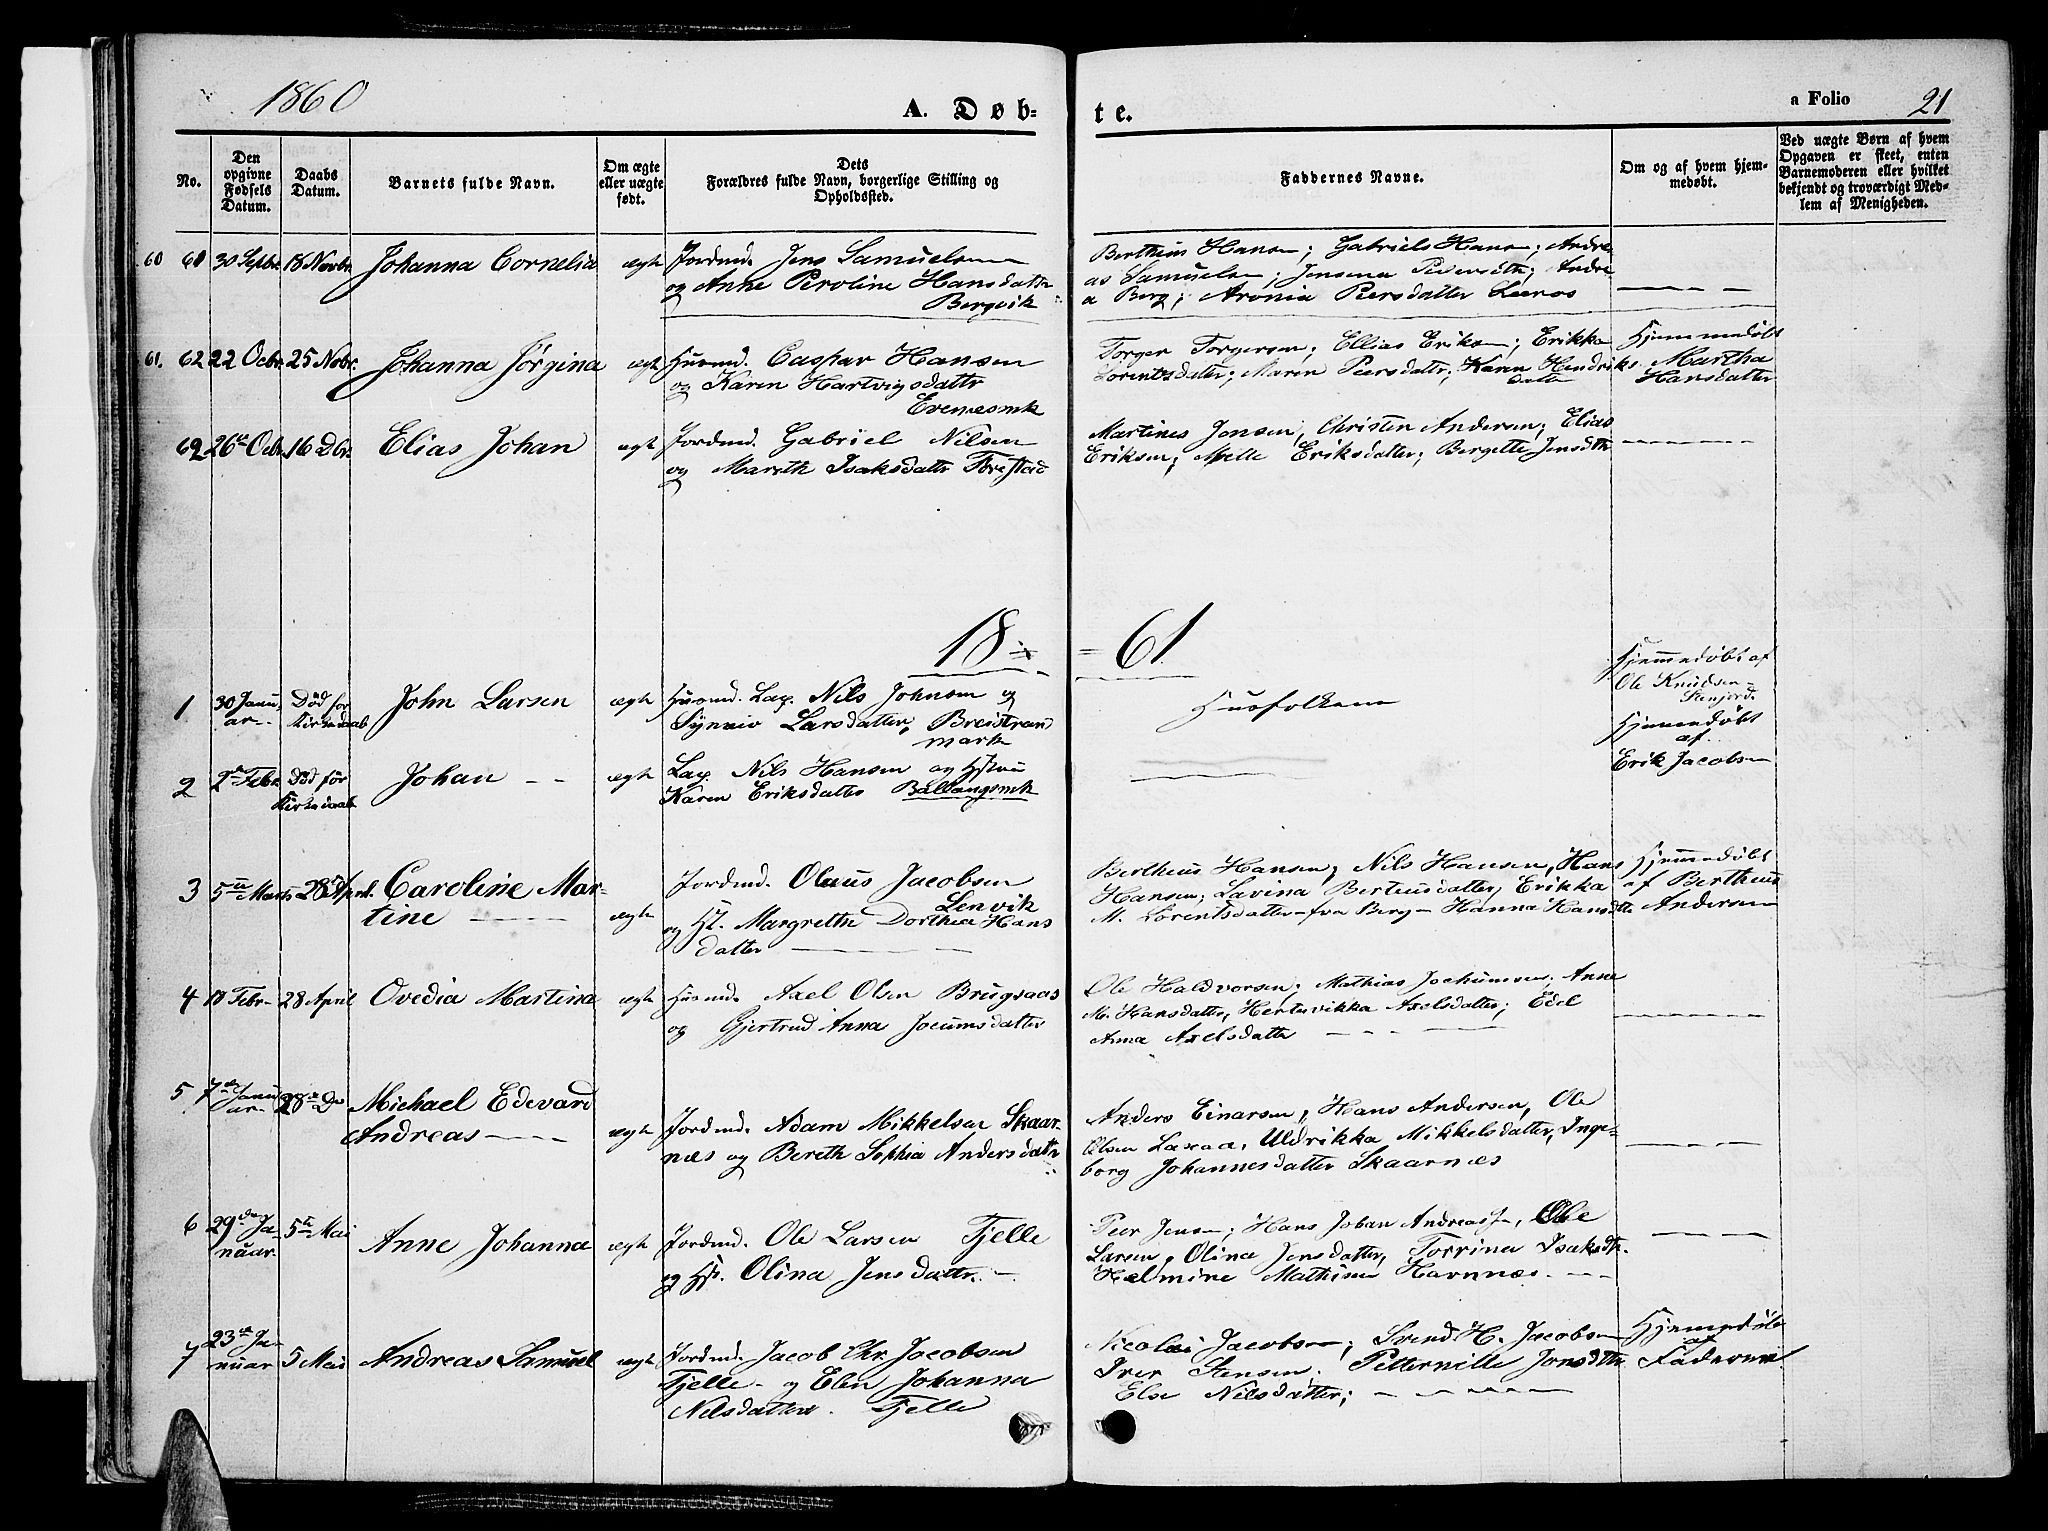 1860
A. Døb-
te.
a Folio 21
No.
Den opgivne Fødsels Datum.
Daabs Datum.
Barnets fulde Navn.
Om ægte eller uægte født.
Dets Forældres fulde Navn, borgerlige Stilling og Opholdssted.
Faddernes Navne.
Om og af hvem hjemmedøbt.
Ved uægte Børn af hvem Opgaven er skeet, enten Barnemoderen eller hvilket bekjendt og troværdigt Medlem af Menigheden.
60 61 30 Septbr. 18 Novbr. Johanna Cornelia ægte Jordmd. Jens Samuelsen
og Anne Peroline Hansdatter
Bergvik
Bertheus Hansen; Gabriels Hansen; Andre
as Samuelsen; Jensena Pedersdtr; Andre
a Berg; Aronia Peersdatter Leeros
61. 62 22 Ocbr. 25 Nobr. Johanna Jörgina ægt Husmd. Caspar Hansen
og Karen Hartvigsdattr
Evenesmk
Torger Torgersen; Ellias Eriksen; Erikka
Lorentsdatter; Maren Peersdatter; Karen Hendriks
datter
Hjemmedøbt
Martha
Hansdatter
62 26de Ocbr. 16 Dbr. Elias Johan ægt Jordmd. Gabriel Nilsen
og Mareth Isaksdattr Forestad
Martines Jensen, Christen Andersen; Elias
Eriksen; Mille Eriksdatter; Bergette Jensdtr
18 =
= 61
1 30 Janu
ar Död for
Kirkedaab John Larsen ægt Husmd. Lap. Nils Johnsen og
Synniv Larsdatter, Breistrand
mark
Husfolkene
Hjemmedøbt af
Ole Knudsen
Stenjord.
2 2de Febr. Död for
Kirkedaab Johan ægt Lap. Nils Hansen og Hstru
Karen Eriksdatter Ballangsmk
Hjemmedøbt
af
Erik Jacobsen
3 5te Marts 28 April. Caroline Mar-
tine ægt Jordmd. Oluus Jacobsen
Lenvik
og H. Margrethe Dorthea Hans
datter
Bertheus Hansen; Nils Hansen, Hans
Hansen; Lavina Berteusdatter, Erikka
M. Lorentsdatter fra Berg Hanna Hansdtr
Hjemmedøbt
af Bertheus
Andersen
4 18 Febr 28 April Ovedia Martina ægt Husmd. Axel Olsen Brugsaas
og Gjertrud Anna Jocumsdatter
Ole Haldvorsen; Mathias Jochumsen, Anne
M. Hansdatter, Hertervikka Axelsdatter; Edel
Anna Axelsdatter
5 7de Janu
ar 28de Do Michael Edevard
Andreas ægt Jordmd. Adam Mikkelsen Skaar
næs og Bereth Sophia Andersdattr
Anders Einarsen, Hans Andersen, Ole
Olsen Laxaa, Uldrikka Mikkelsdatter, Inge-
borg Johannesdatter Skaarnæs
6 29de Ja
nuar 5te Mai Anne Johanna ægt Jordmd. Ole Larsen Fjelle
og H. Olina Jensdattr.
Peer Jensen; Hans Johan Andreas, Ole
Larsen, Olina Jensdatter, Torrina Isaksdtr.
Helmine Mathisen Havnnæs
7 23de Ja
nuar 5 Mai Andreas Samuel ægt Jordmd. Jacob Chr. Jacobsen
Fjelle og Elen Johanna
Nilsdatter Fjelle
Nicolai Jacobsen; Svend H. Jacobsen
Iver Stensen. Petternille Jonsdtr
Else Nilsdatter;
Hjemmedøbt
af
Faderen